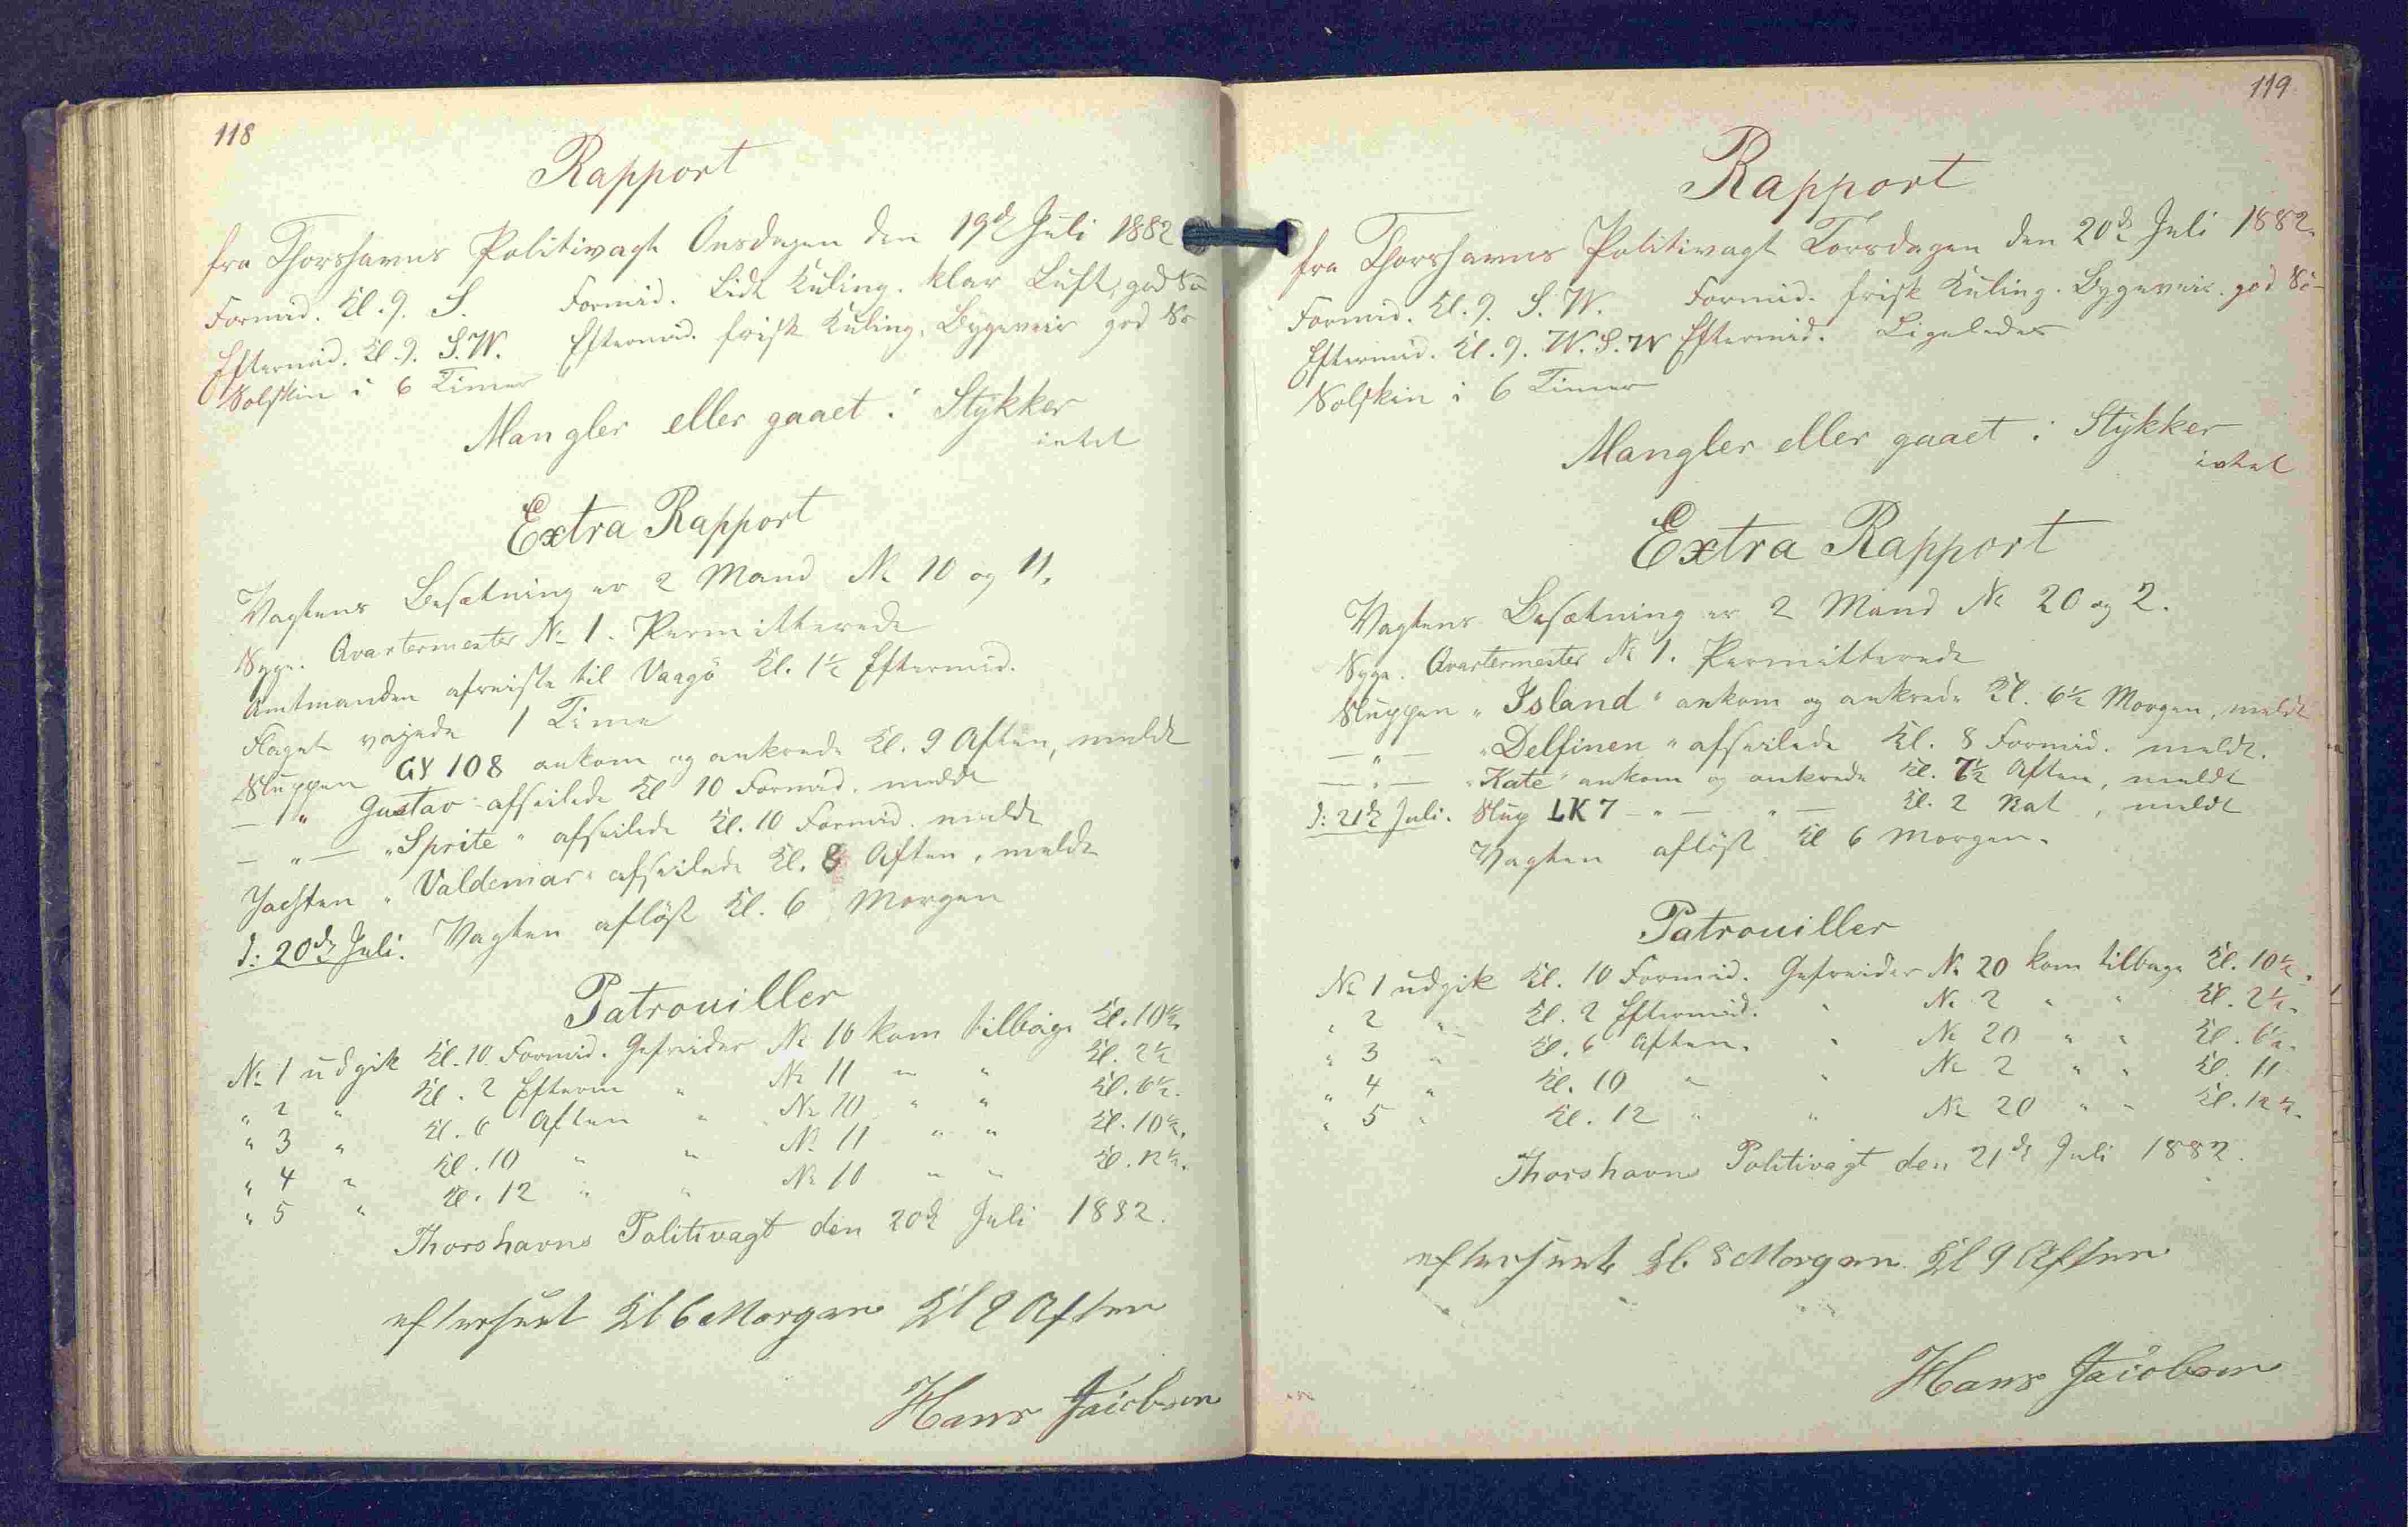 118
Rapport
fra Thorshavns Politivagt Onsdagen den 19de Juli 1882
Formid. Kl. 9. S. Formid. Lidt Kuling. klar Luft, god Sö
Eftermid. Kl. 9. S.W. Eftermid. frisk Kuling. Bygeveir god Sö
Solskin i 6 Timer
Mangler eller gaaet i Stykker
intet
Extra Rapport
Vagtens Besætning er 2 Mand No 10 og 11.
Syge. Qvartermester No 1. Permitterede
Amtmanden afreiste til Vaagö Kl. 1½ Eftermid.
Flaget vajede 1 Time
Sluppen GY 108 ankom og ankrede Kl. 9 Aften, meldt
— " Gustav " afseilede Kl 10 Formid. meldt
— " — "Sprite" afseilede Kl. 10 Formid. meldt
Jachten "Valdemar" afseilede Kl. 8 Aften, meldt
d: 20de Juli. Vagten aflöst Kl. 6 Morgen
Patrouiller
No 1 udgik Kl. 10 Formid. Gefreider No 10 kom tilbage Kl. 10½.
" 2 " Kl. 2 Efterm " No 11 " " Kl. 2½
" 3 " Kl. 6 Aften " No 10 " " Kl. 6½.
" 4 " Kl. 10 " " No 11 " " Kl. 10½.
" 5 " Kl. 12 " " No 10 " " Kl. 12½.
Thorshavns Politivagt den 20de Juli 1882.
efterseet Kl 6 Morgen Kl 9 Aften
Hans Jacobsen
119
Rapport
fra Thorshavns Politivagt Torsdagen den 20de Juli 1882.
Formid. Kl. 9. S.W. Formid. frisk Kuling. Bygeveir. god Sö
Eftermid. Kl. 9. W.S.W Eftermid. Ligeledes
Solskin i 6 Timer
Mangler eller gaaet i Stykker
intet
Extra Rapport
Vagtens Besætning er 2 Mand No 20 og 2.
Syge. Qvartermester No 1. Permitterede
Sluppen "Island" ankom og ankrede Kl. 6½ Morgen, meldt
— " — "Delfinen" afseilede Kl. 8 Formid. meldt.
— " — "Kate" ankom og ankrede Kl. 7½ Aften, meldt
d: 21de Juli. Slup LK 7 — " — " — Kl. 2 Nat, meldt
Vagten aflöst Kl 6 Morgen.
Patrouiller
No 1 udgik Kl. 10 Formid. Gefreider No 20 kom tilbage Kl. 10½.
" 2 " Kl. 2 Eftermid. " No 2 " " Kl. 2½.
" 3 " Kl. 6 Aften. " No 20 " " Kl. 6½.
" 4 " Kl. 10 " " No 2 " " Kl. 11
" 5 " Kl. 12 " " No 20 " " Kl. 12½.
Thorshavns Politivagt den 21de Juli 1882.
efterseet Kl. 8 Morgen Kl 9 Aften
Hans Jacobsen